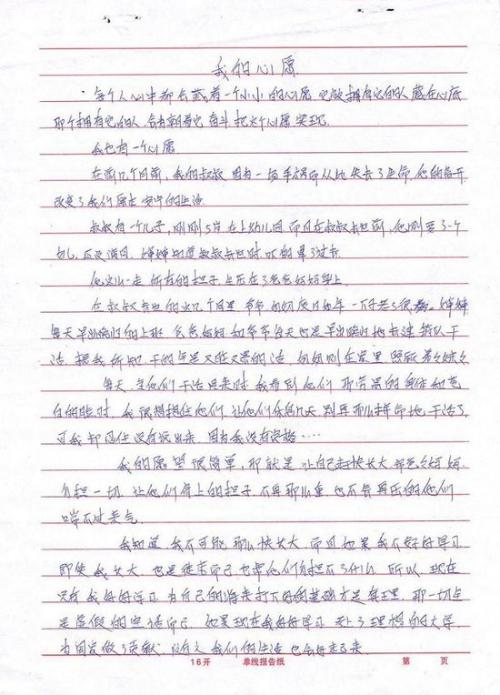 我的心愿
每个人心中都会藏着一个小小的心愿 它被拥有它的人藏在心底
那个拥有它的人 会朝着它奋斗 把这个心愿实现.
我也有一个心愿
在前几个月前, 我的叔叔 因为一场车祸而从此失去了生命, 他的离开
改变了我们原本安宁的生活
叔叔有一个儿子, 刚刚5岁 在上幼儿园 而且在叔叔去世前, 他刚要了一个
女儿, 不及满月. 婶婶知道叔叔去世时 哭的晕了过去.
他这么一走 所有的担子 全压在了爸爸妈妈身上
在叔叔去世的这几个月里 爷爷 奶奶度日如年 一下子老了很多. 婶婶
每天早出晚归的上班 爸爸妈妈和爷爷每天也是早出晚归地去建筑队干
活. 据我所知 干的尽是又脏又累的活, 奶奶则在家里照顾弟弟妹妹
每天, 当他们干活回来时 我看到他们那劳累的身体和苍
白的脸时, 我很想抱住他们, 让他们休息几天 别再那么拼命地干活了
可我却忍住没有说出来, 因为我没有资格....
我的愿望很简单, 那就是让自己赶快长大 帮爸爸妈妈
分担一切. 让他们身上的担子不再那么重, 也不会再压的他们
喘不过来气.
我知道 我不可能那么快长大, 而且如果我不好好学习
即使我长大, 也是徒劳而已 也帮他们分担不了什么 所以, 现在
只有我好好学习, 为自己的将来打下好的基础才是真理, 那一切
是虚假的空话而已. 如果现在我好好学习 考上了理想的大学
为国家做了贡献, 没有 我们的生活也会好起来.
16开 单线报告纸 第 页